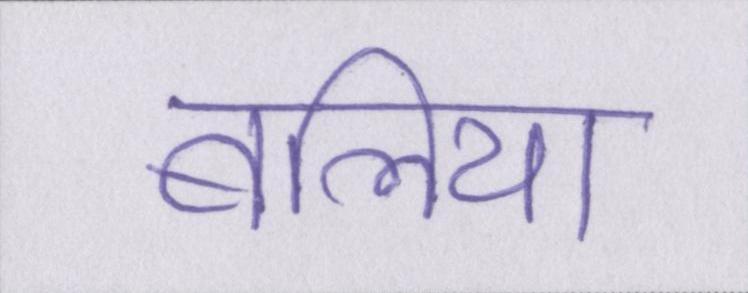 बलिया